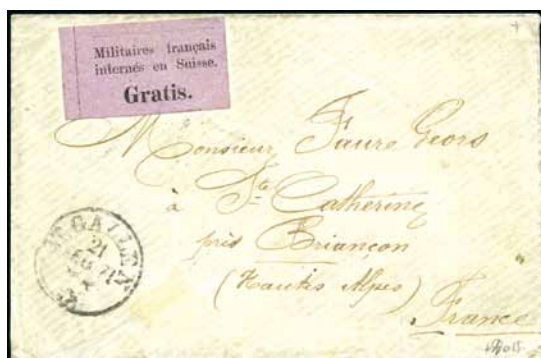 Militaires français
internés en Suisse.
Gratis.
Monsieur Faure Geors
à Ste Catherine
près Briançon
(Hautes Alpes)
France
ST GALLEN
21
71